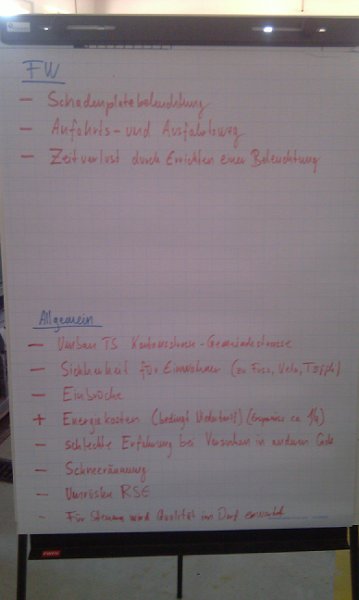 FW
- Schadenplatzbeleuchtung
- Anfahrts- und Ausfahrtsweg
- Zeitverlust durch Errichten einer Beleuchtung
Allgemein
- Umbau TS Kantonsstrasse - Gemeindestrasse
- Sicherheit für Einwohner (zu Fuss, Velo, Töffli)
- Einbrüche
+ Energiekosten (bedingt ca. 1/4)
- schlechte Erfahrung bei Versuchen in anderen
- Schneeräumung
- Umrüsten RSE
- Für Steuern wird Qualität im Dorf erwartet